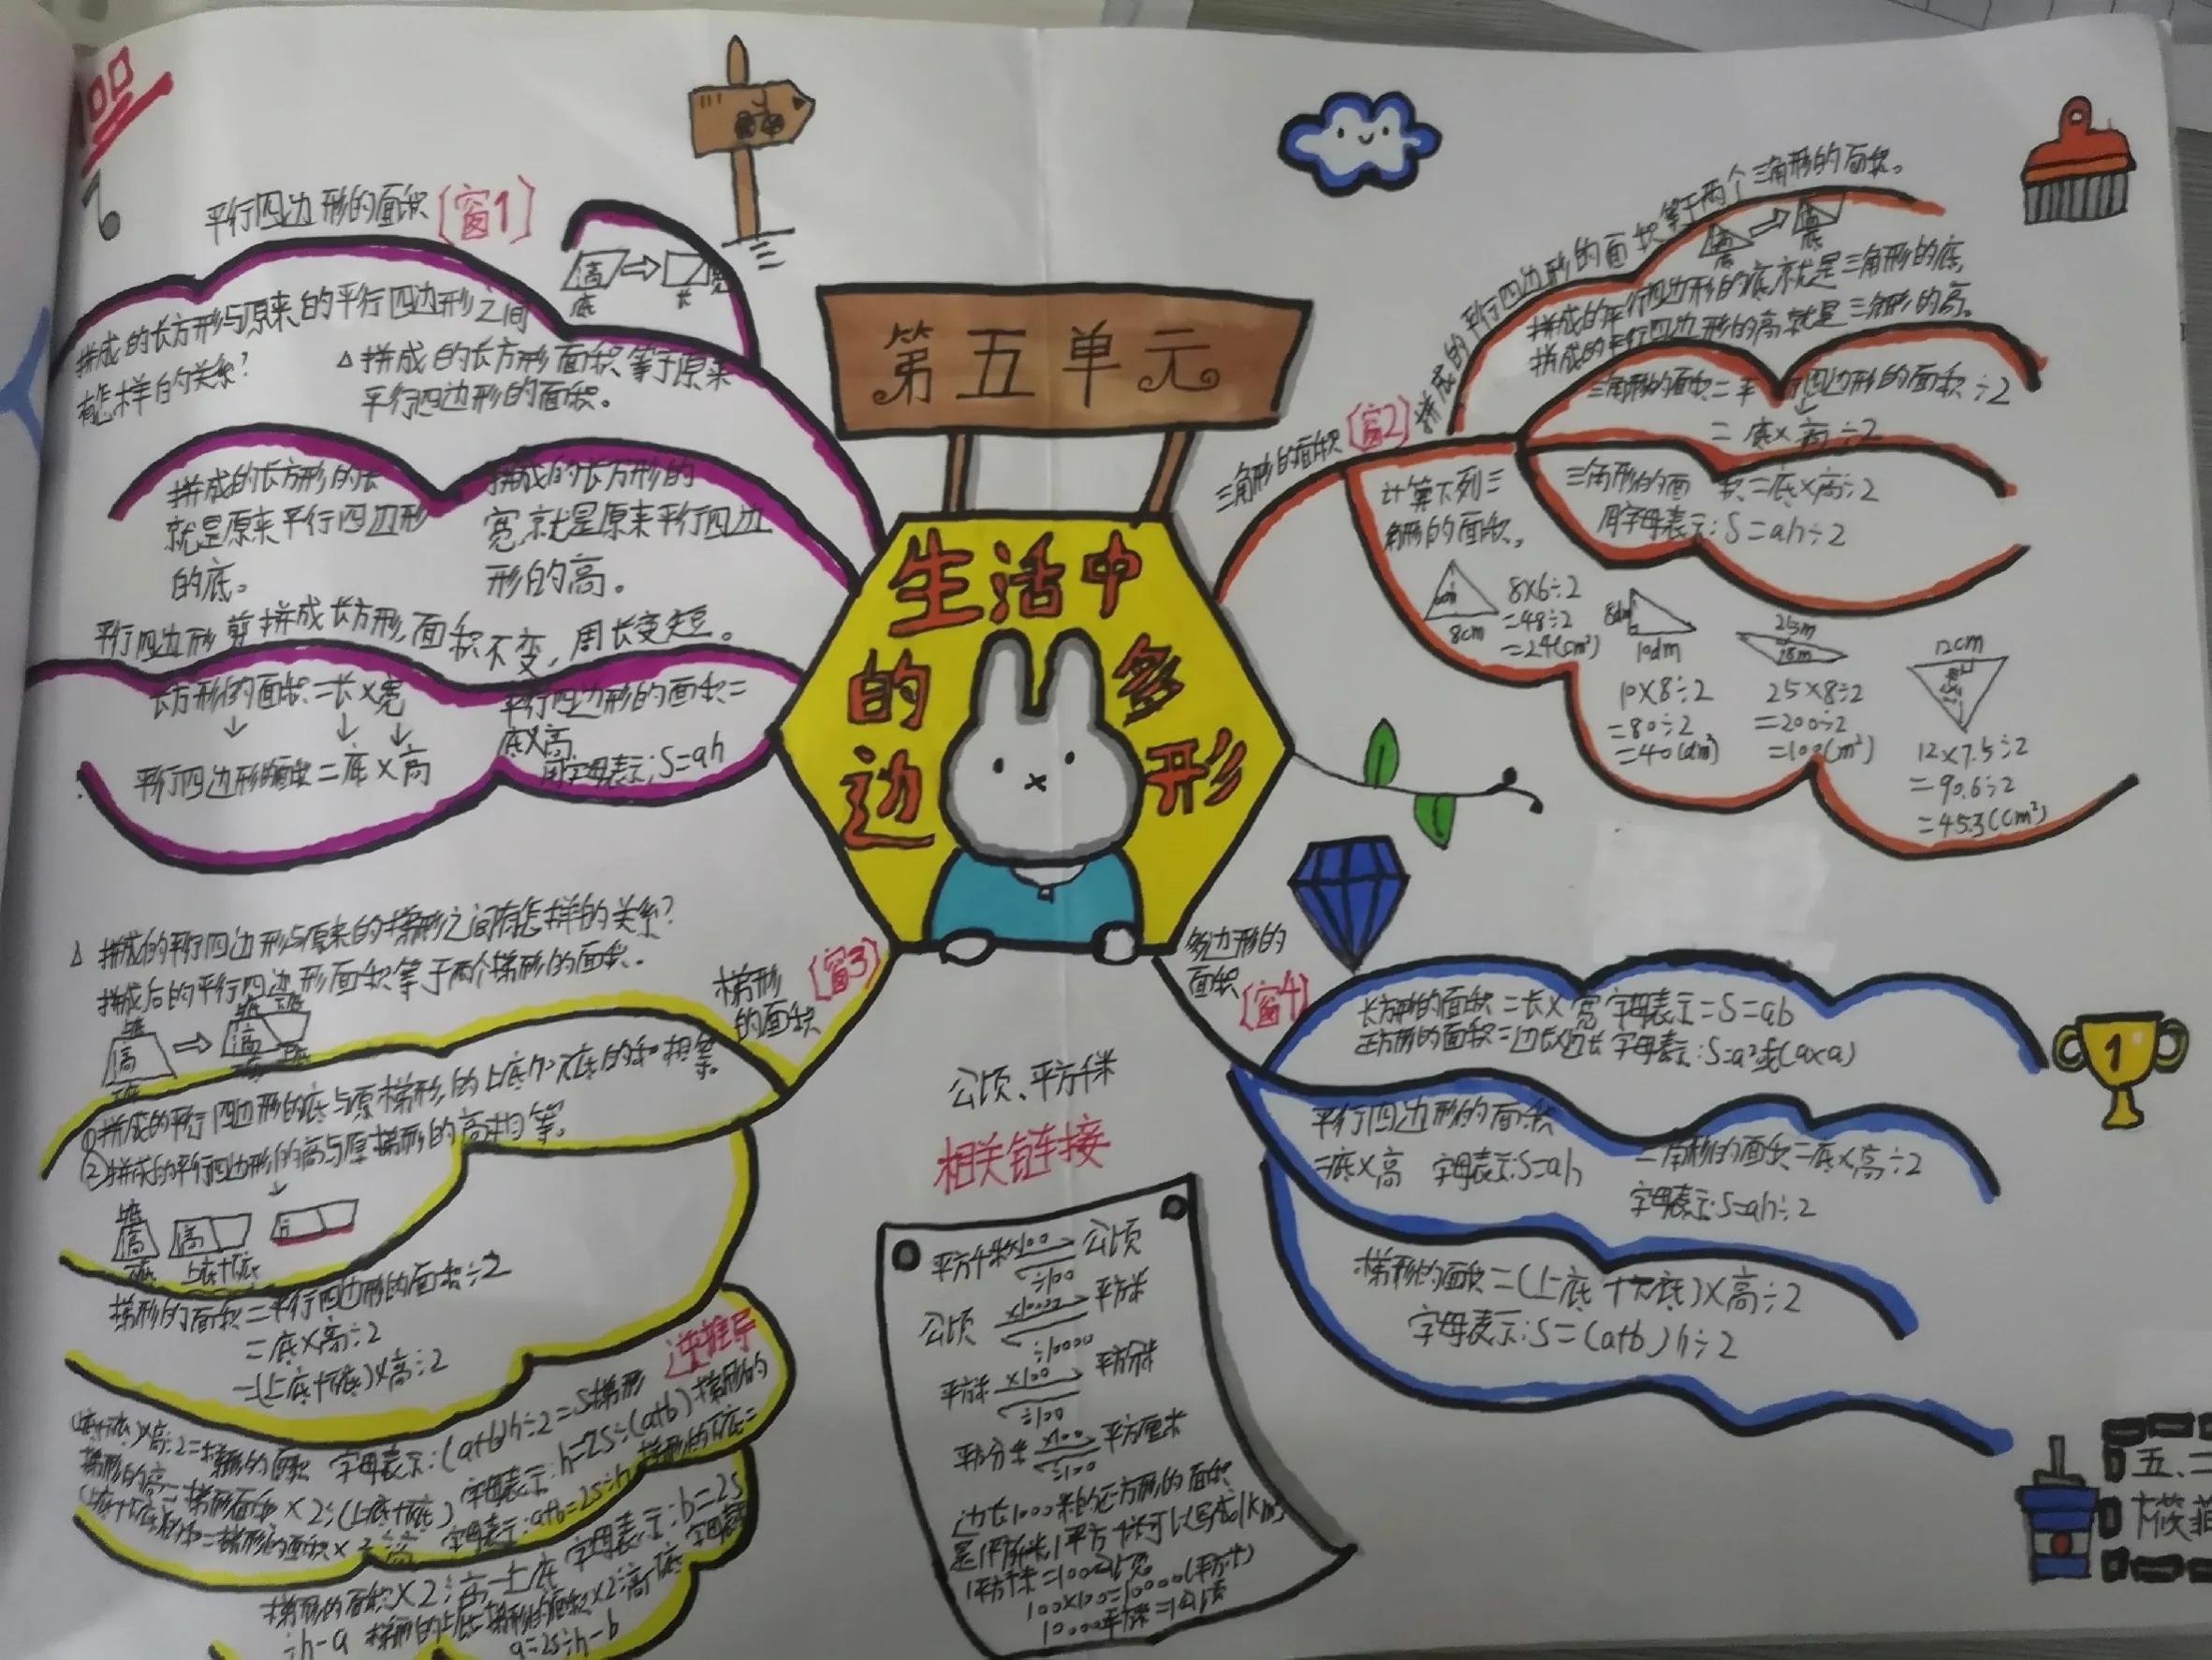 第五单元
生活中
的多
边形
平行四边形的面积
[窗1]
高 底 长 宽
拼成的长方形与原来的平行四边形之间
有怎样的关系?
△拼成的长方形面积等于原来
平行四边形的面积。
拼成的长方形的长
就是原来平行四边形
的底。
拼成的长方形的
宽就是原来平行四边
形的高。
平行四边形剪拼成长方形,面积不变,周长变短。
长方形的面积=长×宽
平行四边形的面积=底×高
平行四边形的面积=
底×高
用字母表示:S=ah
三角形的面积
[窗2]
拼成的平行四边形的面积等于两个三角形的面积。
高 底 高 底
拼成的平行四边形的底就是三角形的底,
拼成的平行四边形的高就是三角形的高。
三角形的面积=平行四边形的面积÷2
=底×高÷2
三角形的面积=底×高÷2
用字母表示:S=ah÷2
计算下列三
角形的面积。
8cm
8×6÷2
=48÷2
=24(cm²)
8dm
10dm
10×8÷2
=80÷2
=40(dm²)
25m
25×8÷2
=200÷2
=100(m²)
12cm
12×7.5÷2
=90.6÷2
=45.3(cm²)
梯形
的面积
[窗3]
△拼成的平行四边形与原来的梯形之间有怎样的关系?
拼成后的平行四边形面积等于两个梯形的面积.
上底 高 下底
①拼成的平行四边形的底与原梯形的上底加下底的和相等。
②拼成的平行四边形的高与原梯形的高相等。
上底 高 下底 高 上底+下底
梯形的面积=平行四边形的面积÷2
=底×高÷2
=(上底+下底)×高÷2
逆推导
(上底+下底)×高÷2=梯形的面积 字母表示:(a+b)h÷2=S梯形
梯形的高=梯形面积×2÷(上底+下底) 字母表示:h=2S÷(a+b)
字母表示:a+b=2s÷h
梯形的下底=
梯形的面积×2÷高-上底 字母表示:b=2s
÷h-a 梯形的上底=梯形的面积×2÷高-下底 字母表示
a=2s÷h-b
多边形的
面积
[窗4]
长方形的面积=长×宽 字母表示=S=ab
正方形的面积=边长×边长 字母表示:S=a²或(a×a)
平行四边形的面积
=底×高 字母表示:S=ah
三角形的面积=底×高÷2
字母表示:S=ah÷2
梯形的面积=(上底+下底)×高÷2
字母表示:S=(a+b)h÷2
公顷、平方千米
相关链接
平方千米 ×100 公顷
÷100
公顷 ×10000 平方米
÷10000
平方米 ×100 平方分米
÷100
平方分米 ×100 平方厘米
÷100
边长1000米的正方形的面积
是1平方千米,1平方千米可以写成1km²
1平方千米=100公顷
100×100=10000(平方米)
10000平方米=1公顷
1
五、二